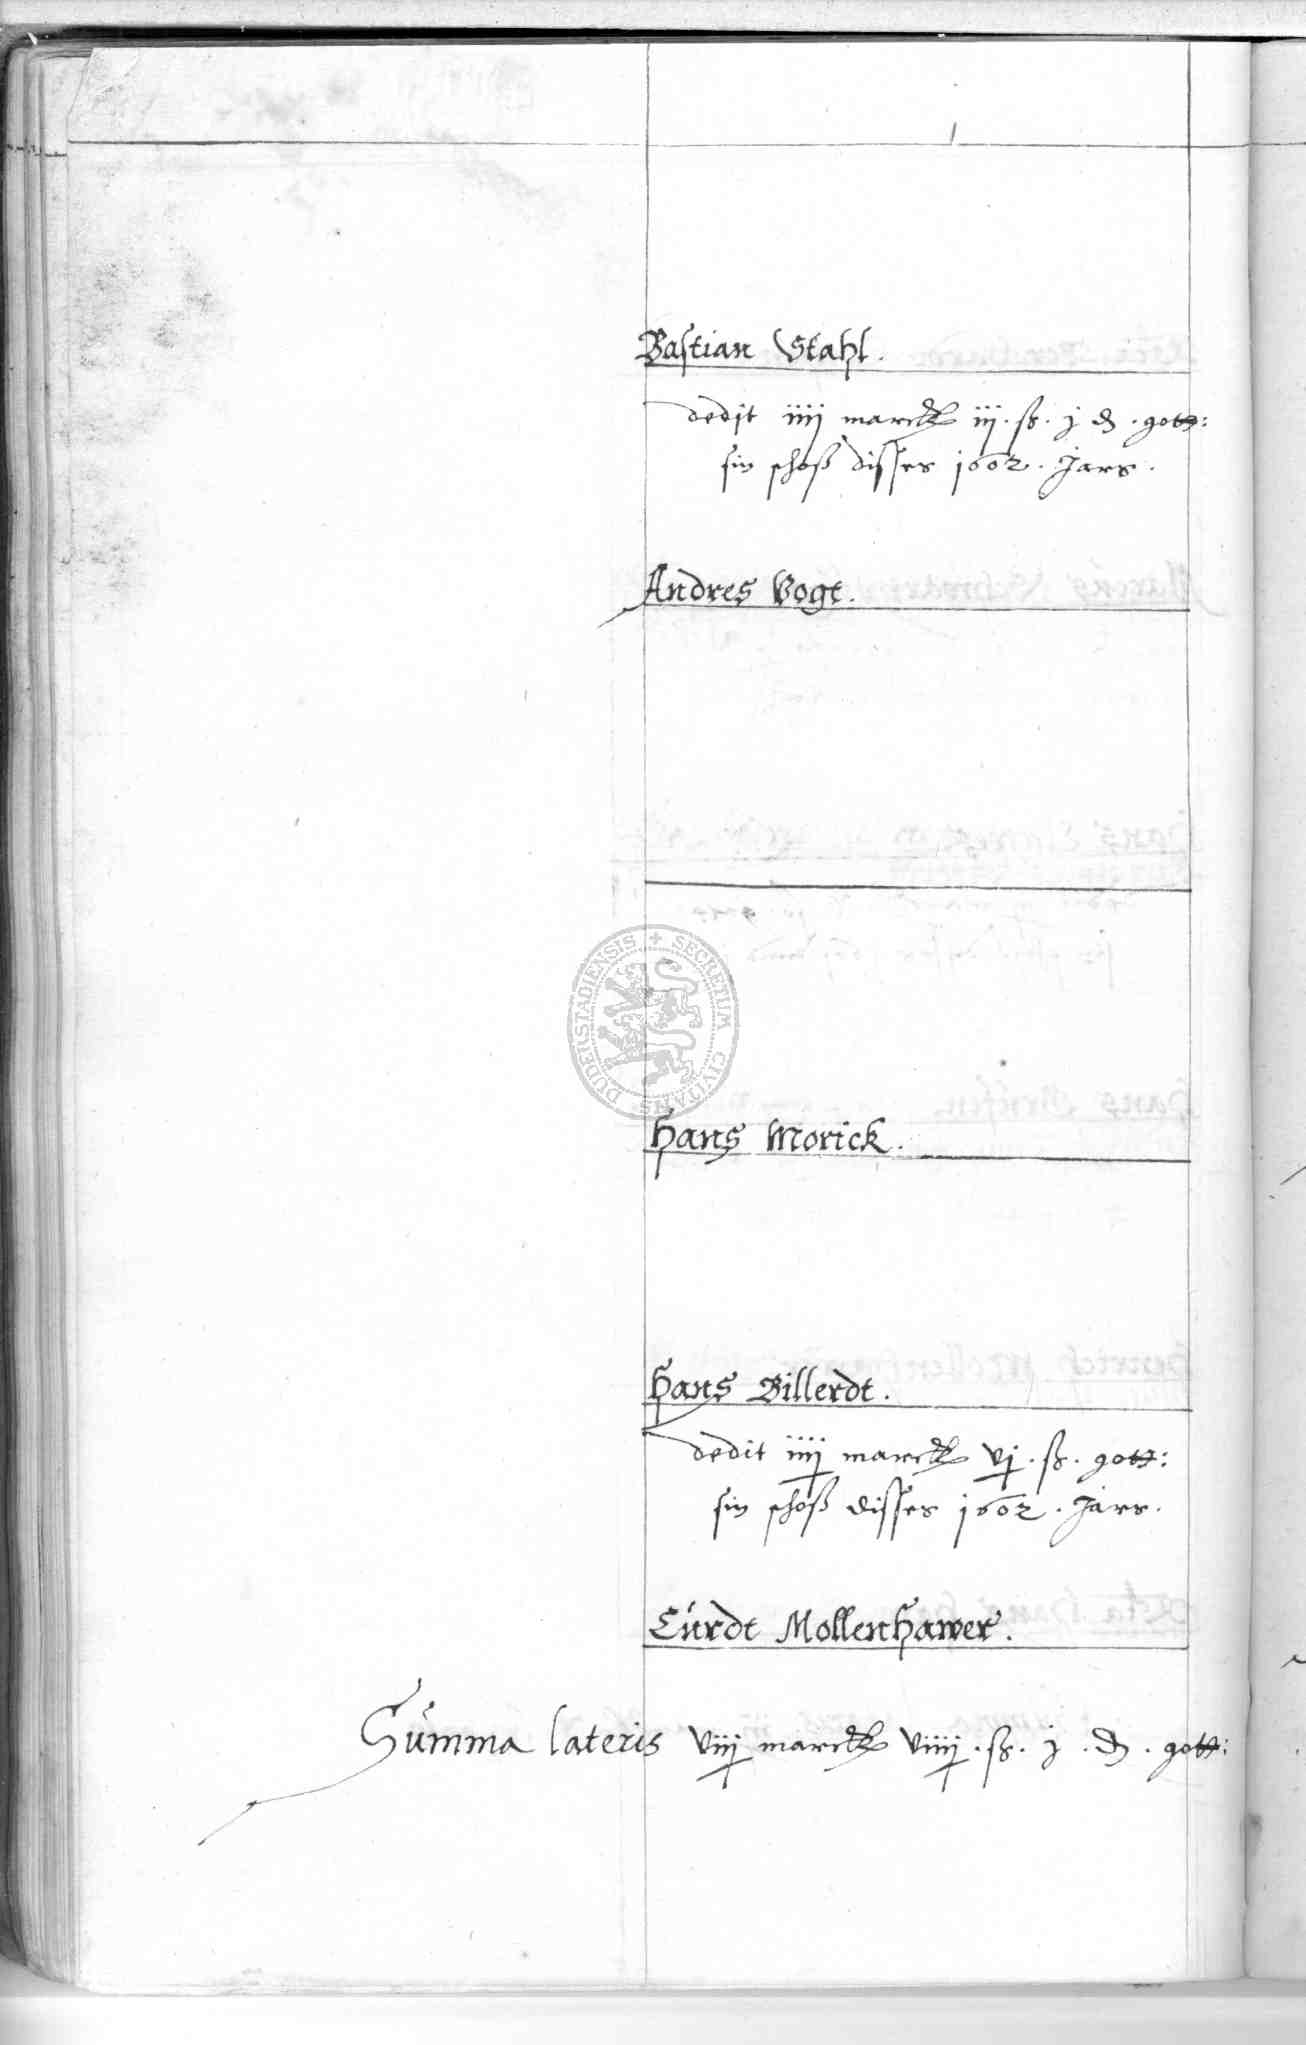 Bastian Stahl.
dedit iiij marck iij. ß. j ₰. gott:
sin schoß disses 1602. Jars.
Andres Vogt.
SECRETUM CIVITANS DUDERSTADIENSIS
Hans Morick.
Hans Billerdt.
dedit iiij marck vj. ß. gott:
sin schoß disses 1602. Jars.
Curdt Mollenhawer.
Summa lateris viij marck viiij. ß. j. ₰. gott: